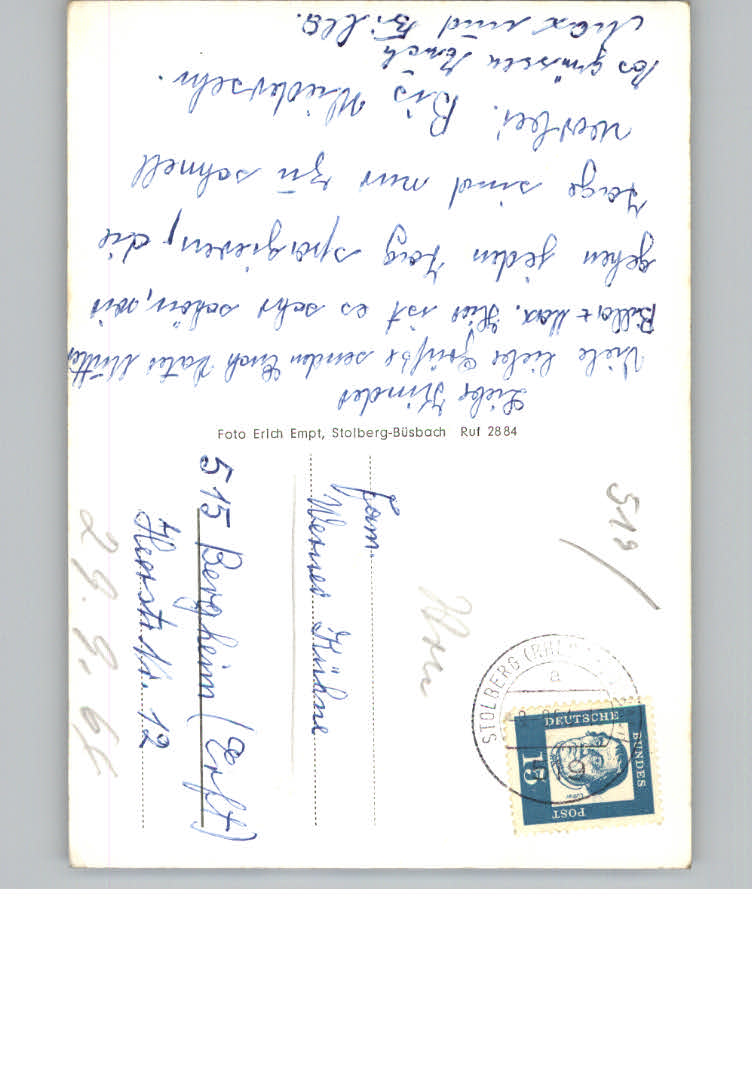 Liebe Kinder
Viele liebe Grüße senden Euch Vater Mutter
Billa + Max. Hier ist es sehr schön, wir
gehen jeden Tag spazieren, die
Tage sind nur zu schnell
vorbei. Bis Wiedersehn.
Es grüssen Euch
Max und Billa.
Foto Erich Empt, Stolberg-Büsbach Ruf 2884
Fam.
Werner Kühne
515 Bergheim (Erft)
Heerstr. Nr. 12
29. 9. 64
519/
STOLBERG (RHEINL)
a
519
DEUTSCHE
BUNDES
POST
15
Luther